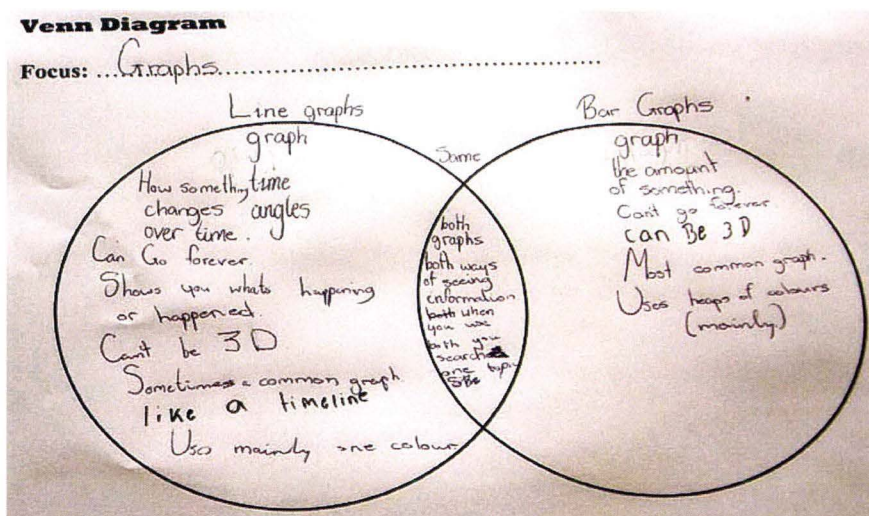 Venn Diagram
Focus: Graphs
Line graphs
graph
How something time
changes angles
over time.
Can Go forever.
Shows you whats happening
or happened.
Can't be 3D
Sometimes a common graph.
like a timeline
Uses mainly one colour
Same
both
graphs
both ways
of seeing
information
both when
you use
both you
search
one topic
Bar Graphs
graph
the amount
of something.
Can't go forever
can Be 3D
Most common graph.
Uses heaps of colours
(mainly.)